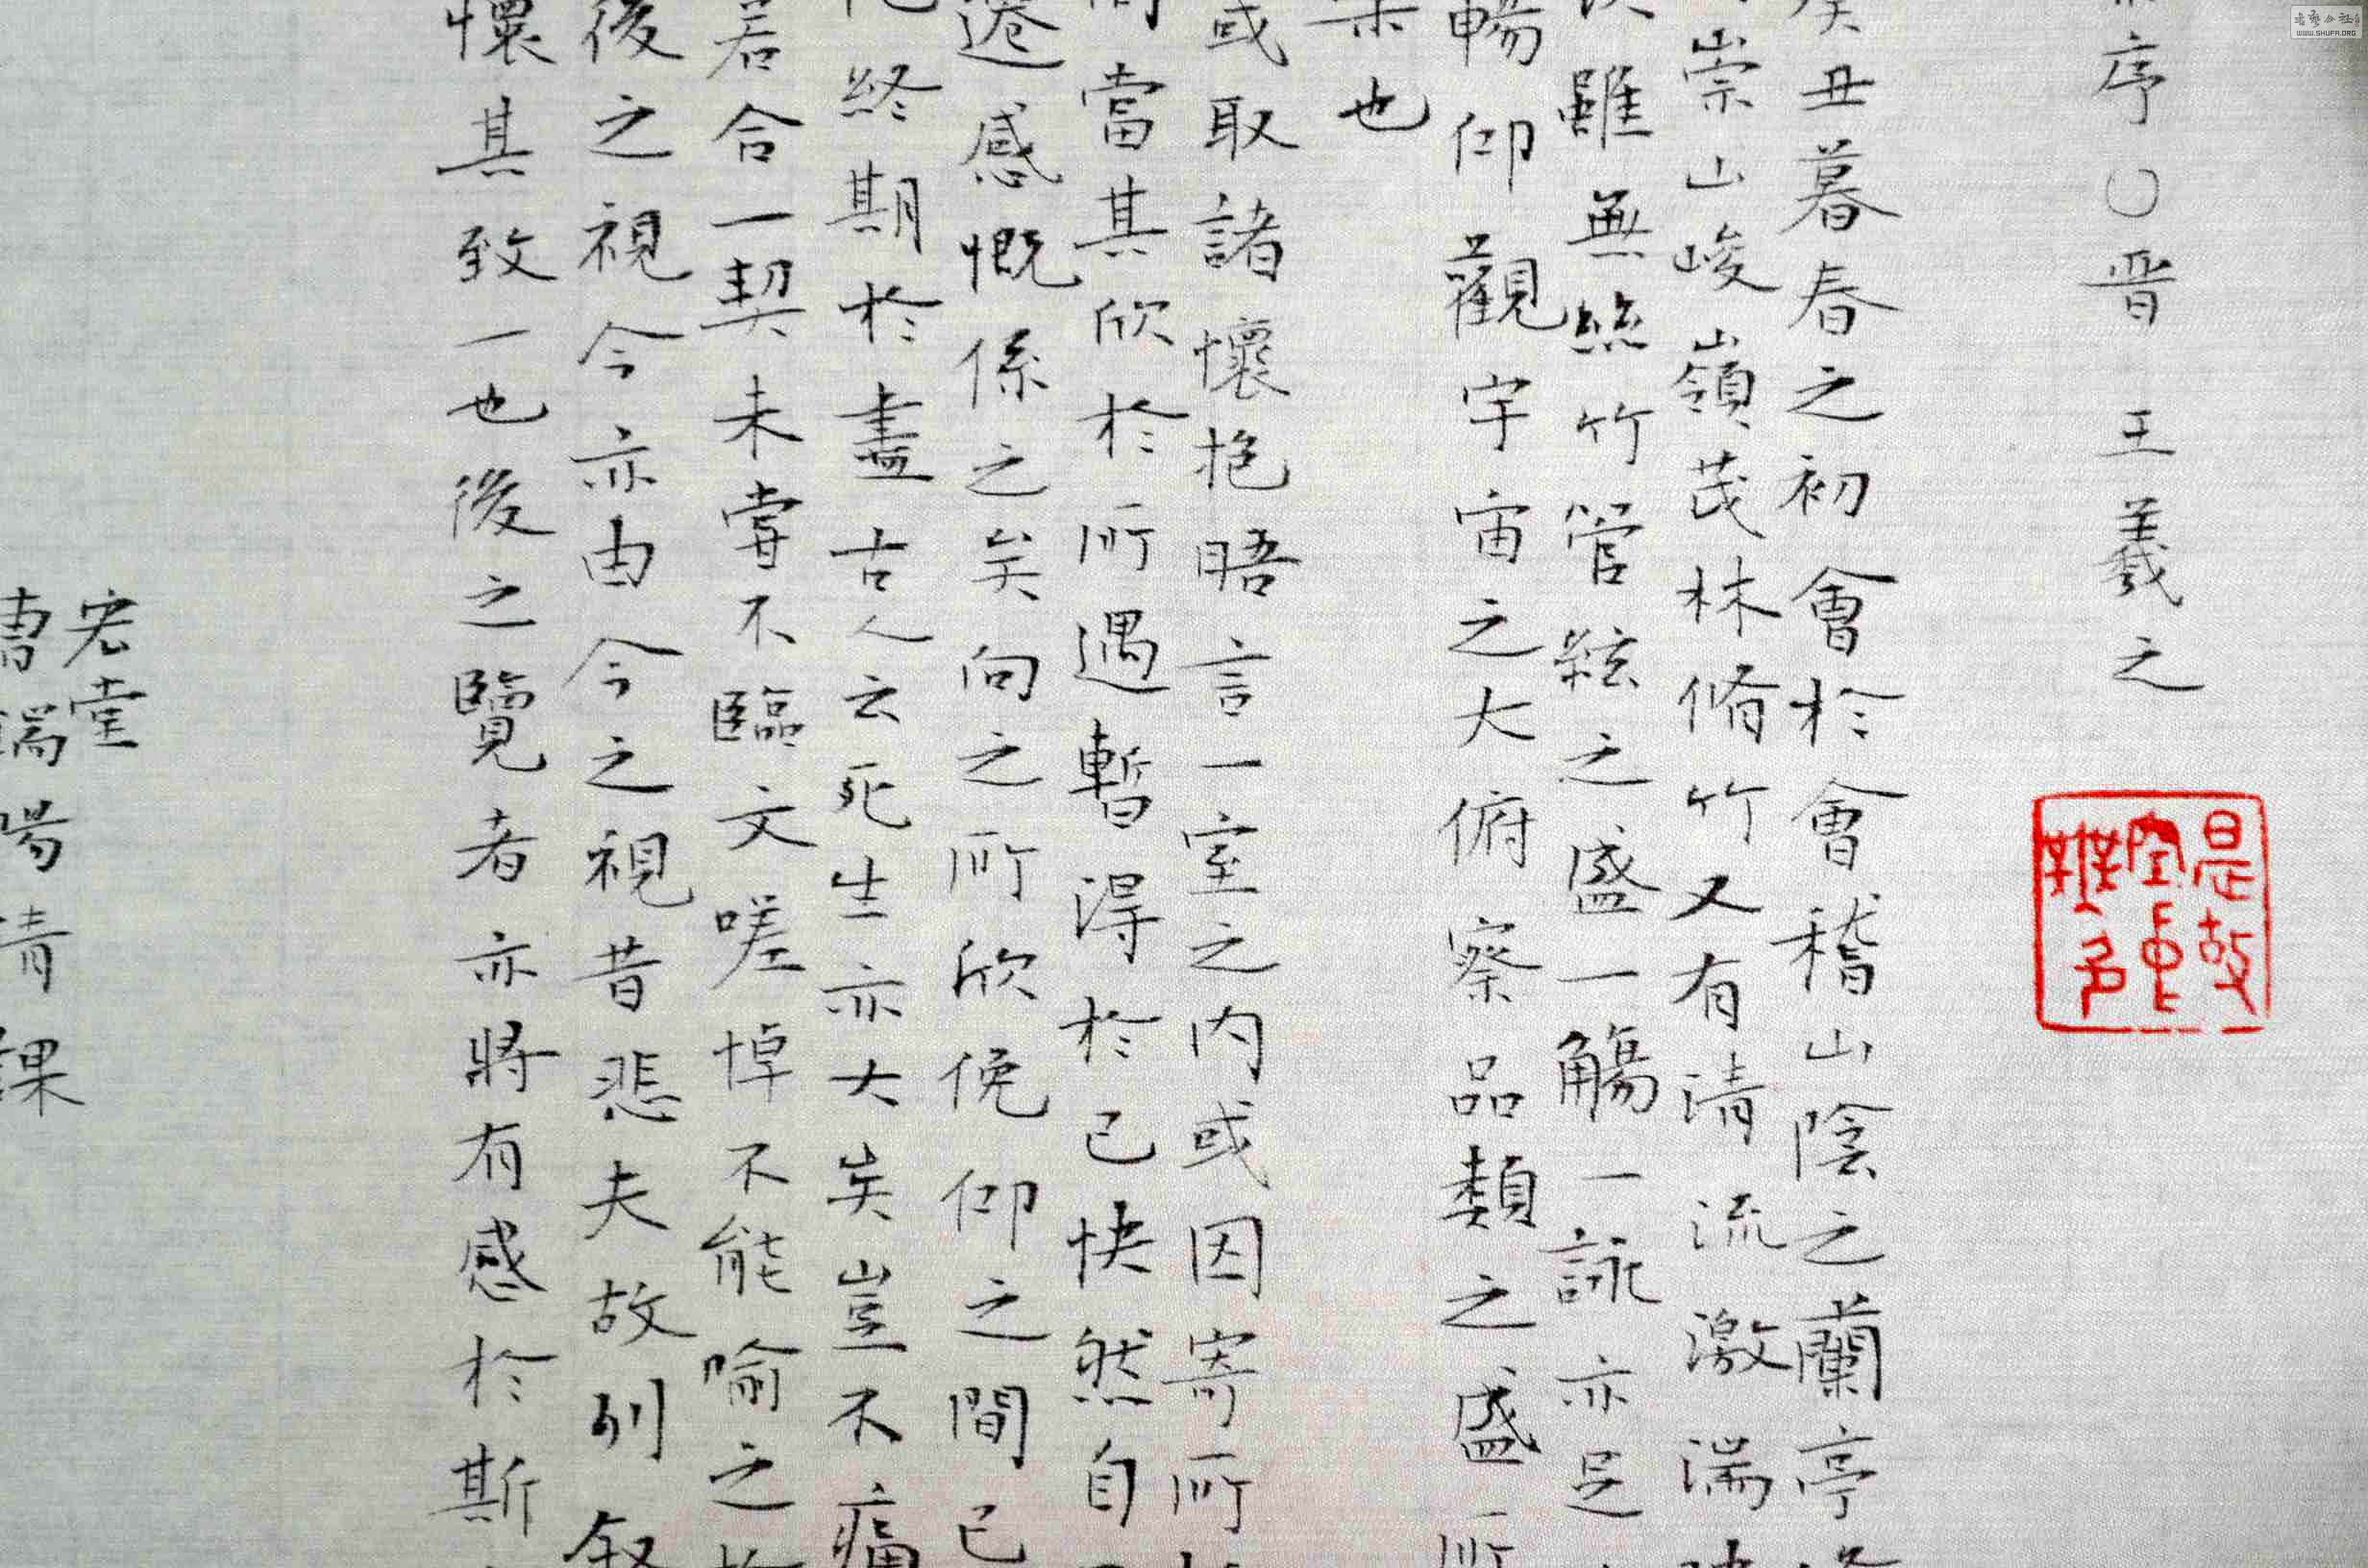 序〇晋 王羲之
丑暮春之初會於會稽山陰之蘭亭
崇山峻嶺茂林脩竹又有清流激湍
雖無絲竹管絃之盛一觴一詠亦足
暢仰觀宇宙之大俯察品類之盛所
也
或取諸懷抱晤言一室之内或因寄所
當其欣於所遇暫得於己快然自
遷感慨係之矣向之所欣俛仰之間已
終期於盡古人云死生亦大矣豈不痛
若合一契未嘗不臨文嗟悼不能喻之
後之視今亦由今之視昔悲夫故列叙
懷其致一也後之覽者亦將有感於斯
宏堂
書端陽清課
是故
名
WWW.SHUFA.ORG